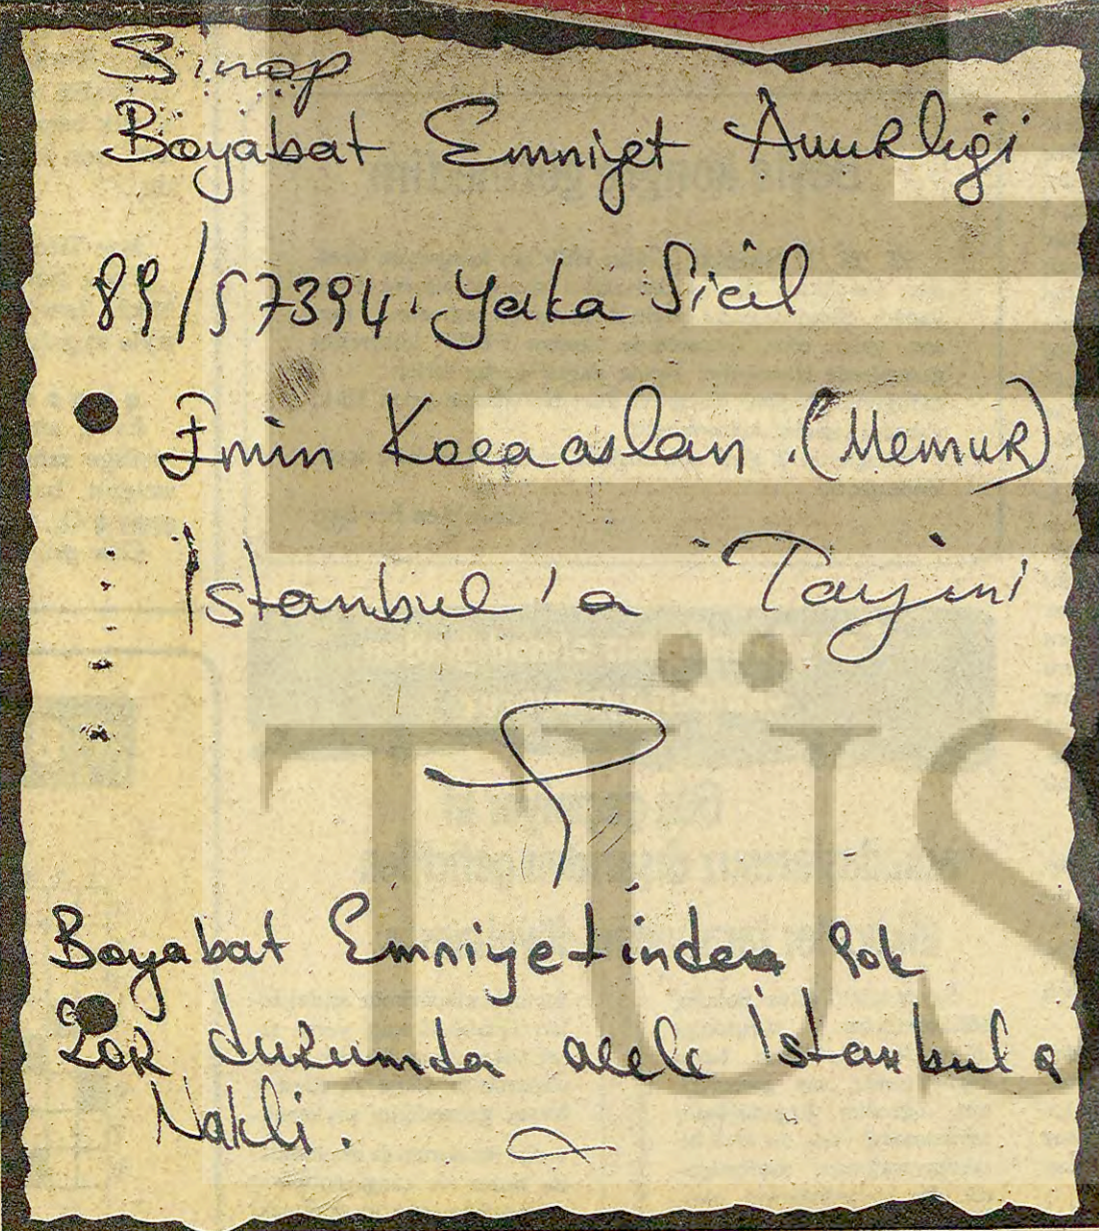 Sinop
Boyabat Emniyet Amirligi
89/57394. Yaka Sicil
Emin Kocaaslan. (Memur)
İstanbul'a Tayini
Boyabat Emniyetinden Çok
Zor durumda acele İstanbul a
Nakli.
TÜS